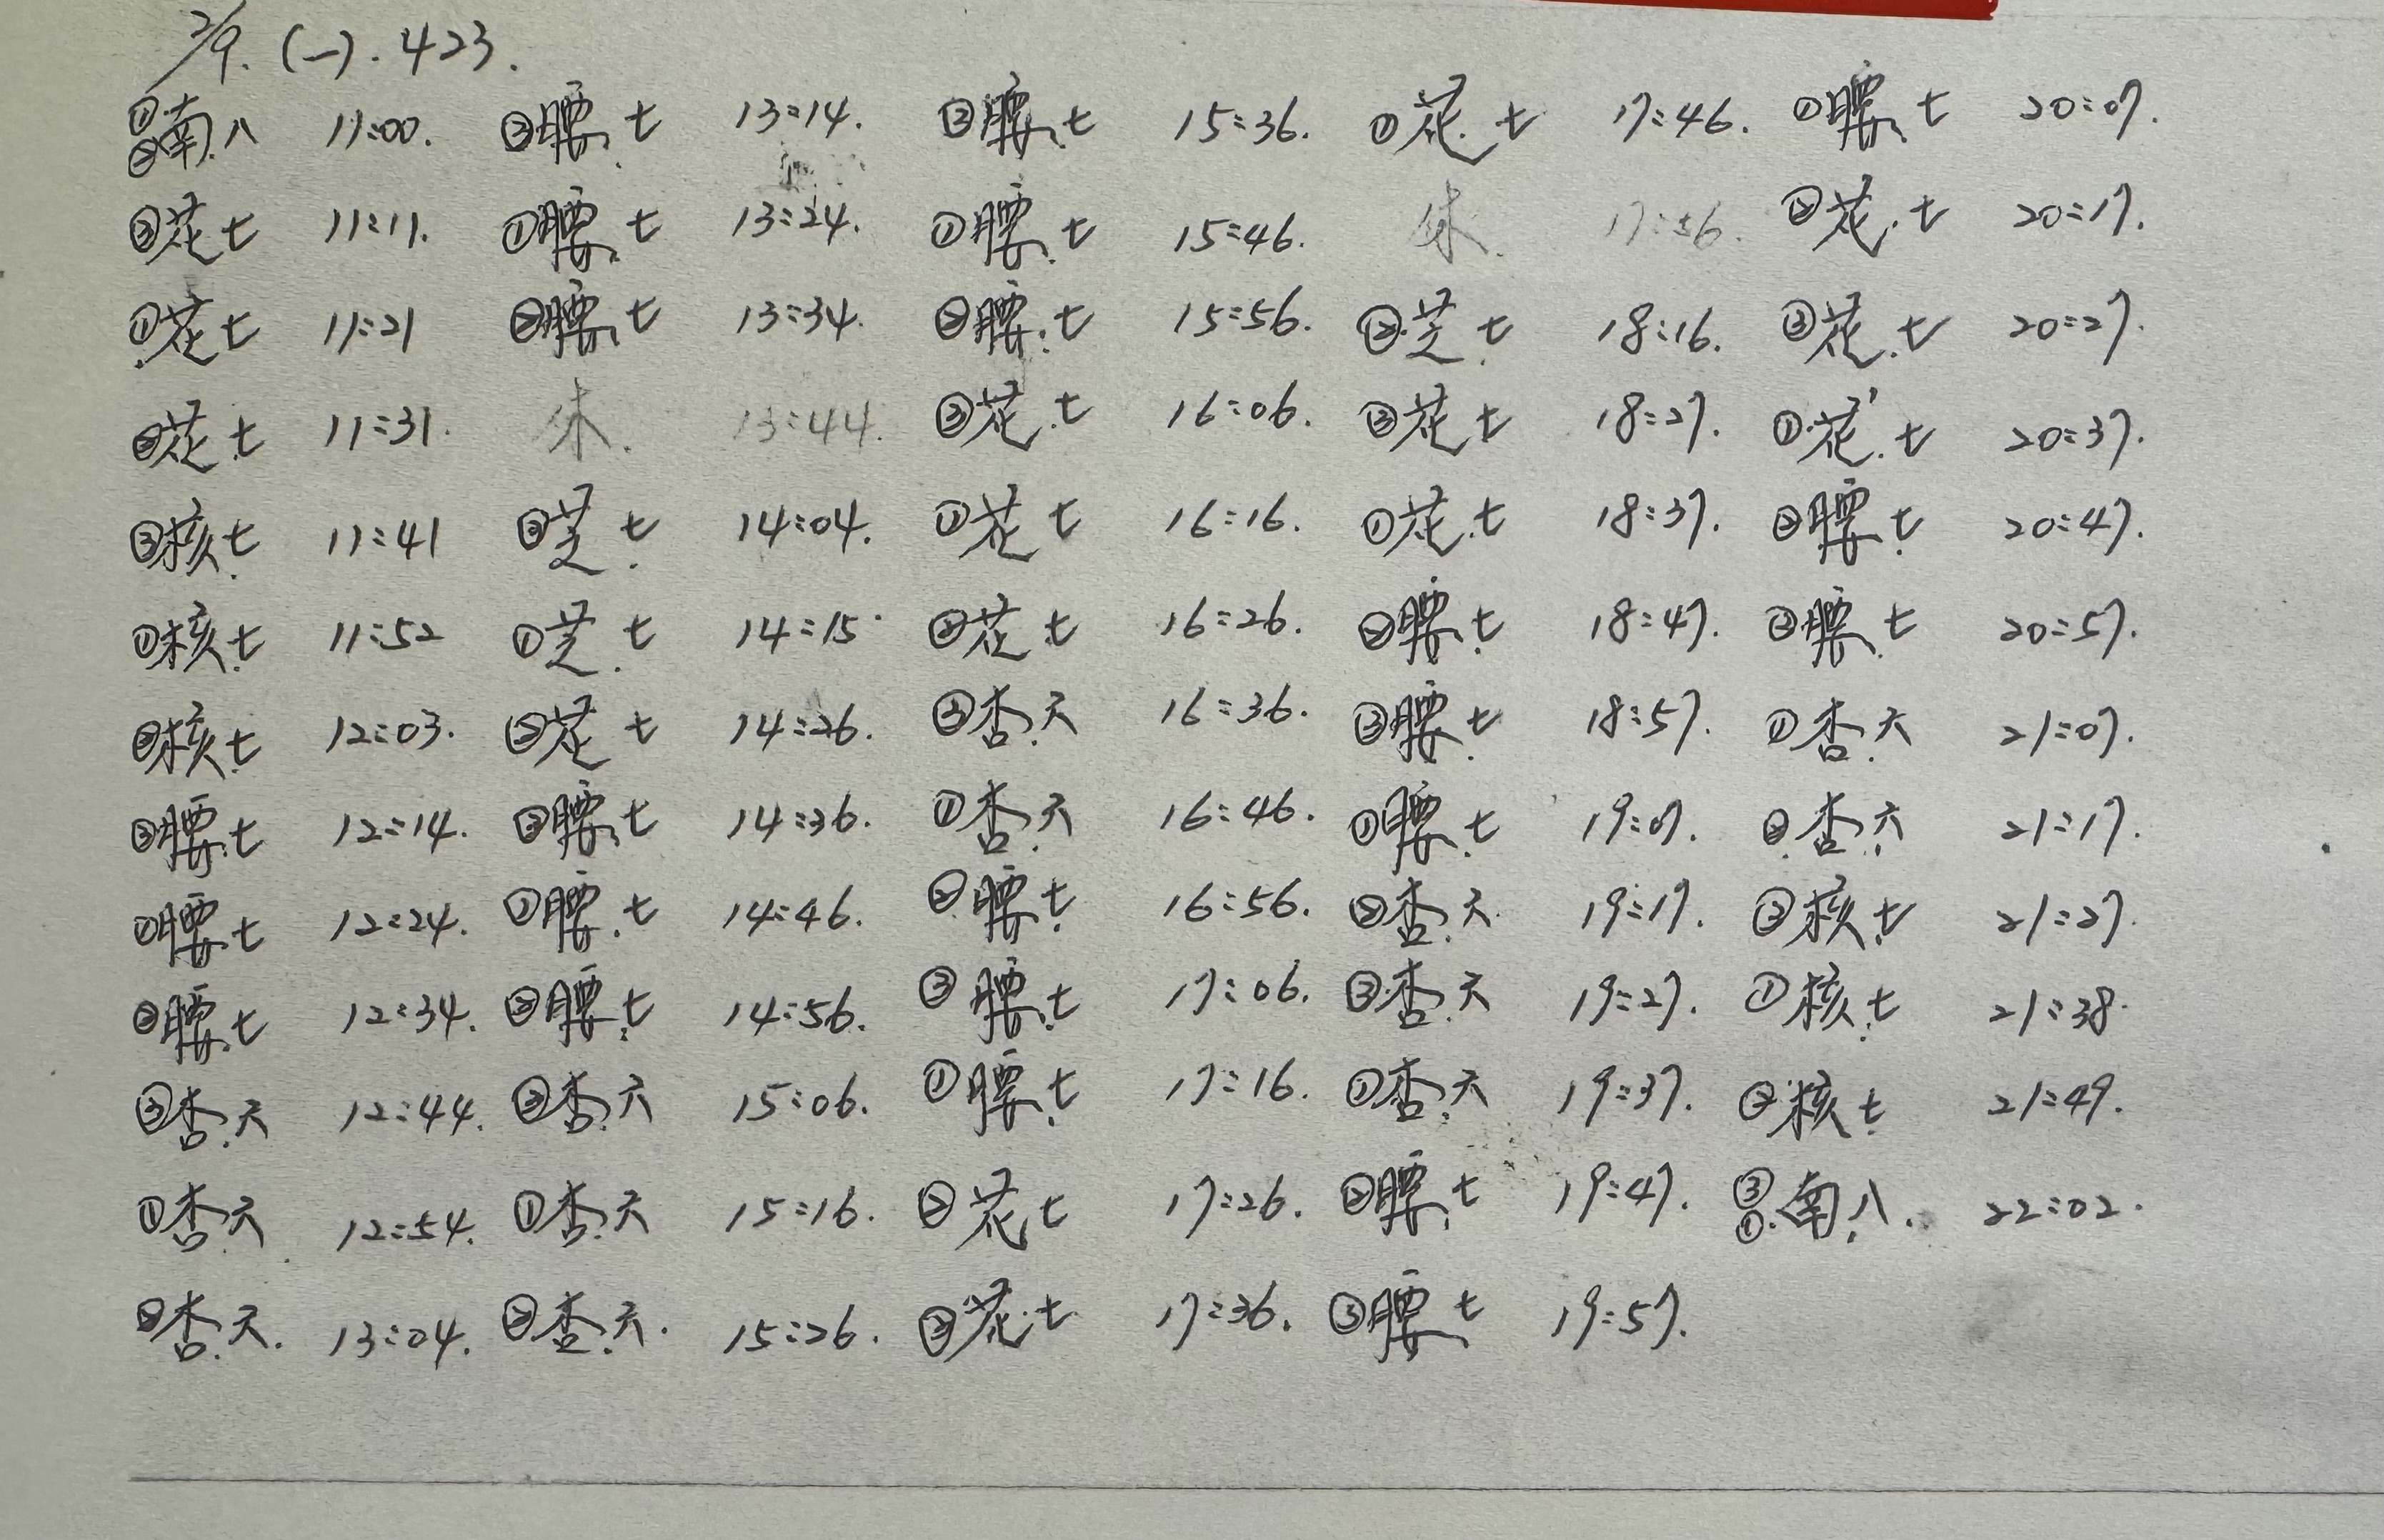 2/9. (一). 423.
①②南八 11:00.
③花七 11:11.
①花七 11:21
②花七 11:31.
③核七 11:41
①核七 11:52
②核七 12:03.
③腰七 12:14.
①腰七 12:24.
②腰七 12:34.
③杏天 12:44.
①杏天 12:54.
②杏天. 13:04.
③腰七 13:14.
①腰七 13:24.
②腰七 13:34.
休. 13:44.
③芝七 14:04.
①芝七 14:15
②花七 14:26.
③腰七 14:36.
①腰七 14:46.
②腰七 14:56.
③杏天 15:06.
①杏天 15:16.
②杏天. 15:26.
③腰七 15:36.
①腰七 15:46.
②腰七 15:56.
③花七 16:06.
①花七 16:16.
②花七 16:26.
③杏天 16:36.
①杏天 16:46.
②腰七 16:56.
③腰七 17:06.
①腰七 17:16.
②花七 17:26.
③花七 17:36.
①花七 17:46.
休. 17:56.
②芝七 18:16.
③花七 18:27.
①花七 18:37.
②腰七 18:47.
③腰七 18:57.
①腰七 19:07.
②杏天 19:17.
③杏天 19:27.
①杏天 19:37.
②腰七 19:47.
③腰七 19:57.
①腰七 20:07.
②花七 20:17.
③花七 20:27.
①花七 20:37.
②腰七 20:47.
③腰七 20:57.
①杏天 21:07.
②杏天 21:17.
③核七 21:27.
①核七 21:38.
②核七 21:49.
③①南八. 22:02.